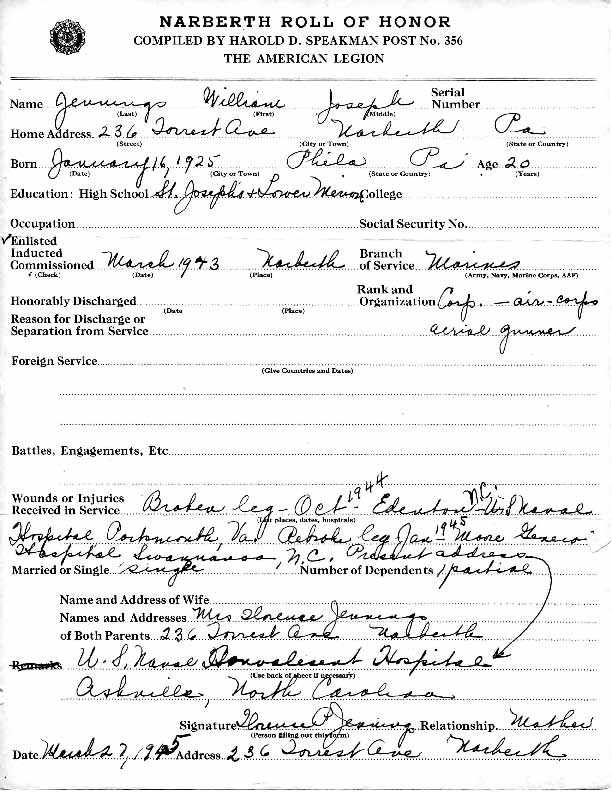 NARBERTH ROLL OF HONOR
COMPILED BY HAROLD D. SPEAKMAN POST No. 356
THE AMERICAN LEGION
Name Jennings William Joseph Serial Number
(Last) (First) (Middle)
Home Address 236 Forrest Ave Narberth Pa
(Street) (City or Town) (State or Country)
Born January 16, 1925 Phila Pa Age 20
(Date) (City or Town) (State or Country) (Years)
Education: High School St. Joseph's + Lower Merion College
Occupation Social Security No.
✓Enlisted
Inducted Branch
Commissioned March 1943 Narberth of Service Marines
(Check) (Date) (Place) (Army, Navy, Marine Corps, AAF)
Rank and
Honorably Discharged Organization Corp. - air-corps
(Date (Place)
Reason for Discharge or
Separation from Service aerial gunner
Foreign Service
(Give Countries and Dates)
Battles, Engagements, Etc
Wounds or Injuries
Received in Service Broken leg - Oct - 1944 Edenton N.C. U.S Naval
(List places, dates, hospitals)
Hospital Portsmouth, Va. Rebroke leg Jan 1945 Moore General
Hospital Swannanoa, N.C. Present address
Married or Single single Number of Dependents 1 partial
Name and Address of Wife
Names and Addresses Mrs Florence Jennings
of Both Parents 236 Forrest Ave Narberth
Remarks U.S. Naval Convalescent Hospital
(Use back of sheet if necessary)
Ashville, North Carolina
Signature Florence P Jennings Relationship Mother
(Person filling out this form)
Date March 27, 1945 Address 236 Forrest Ave Narberth